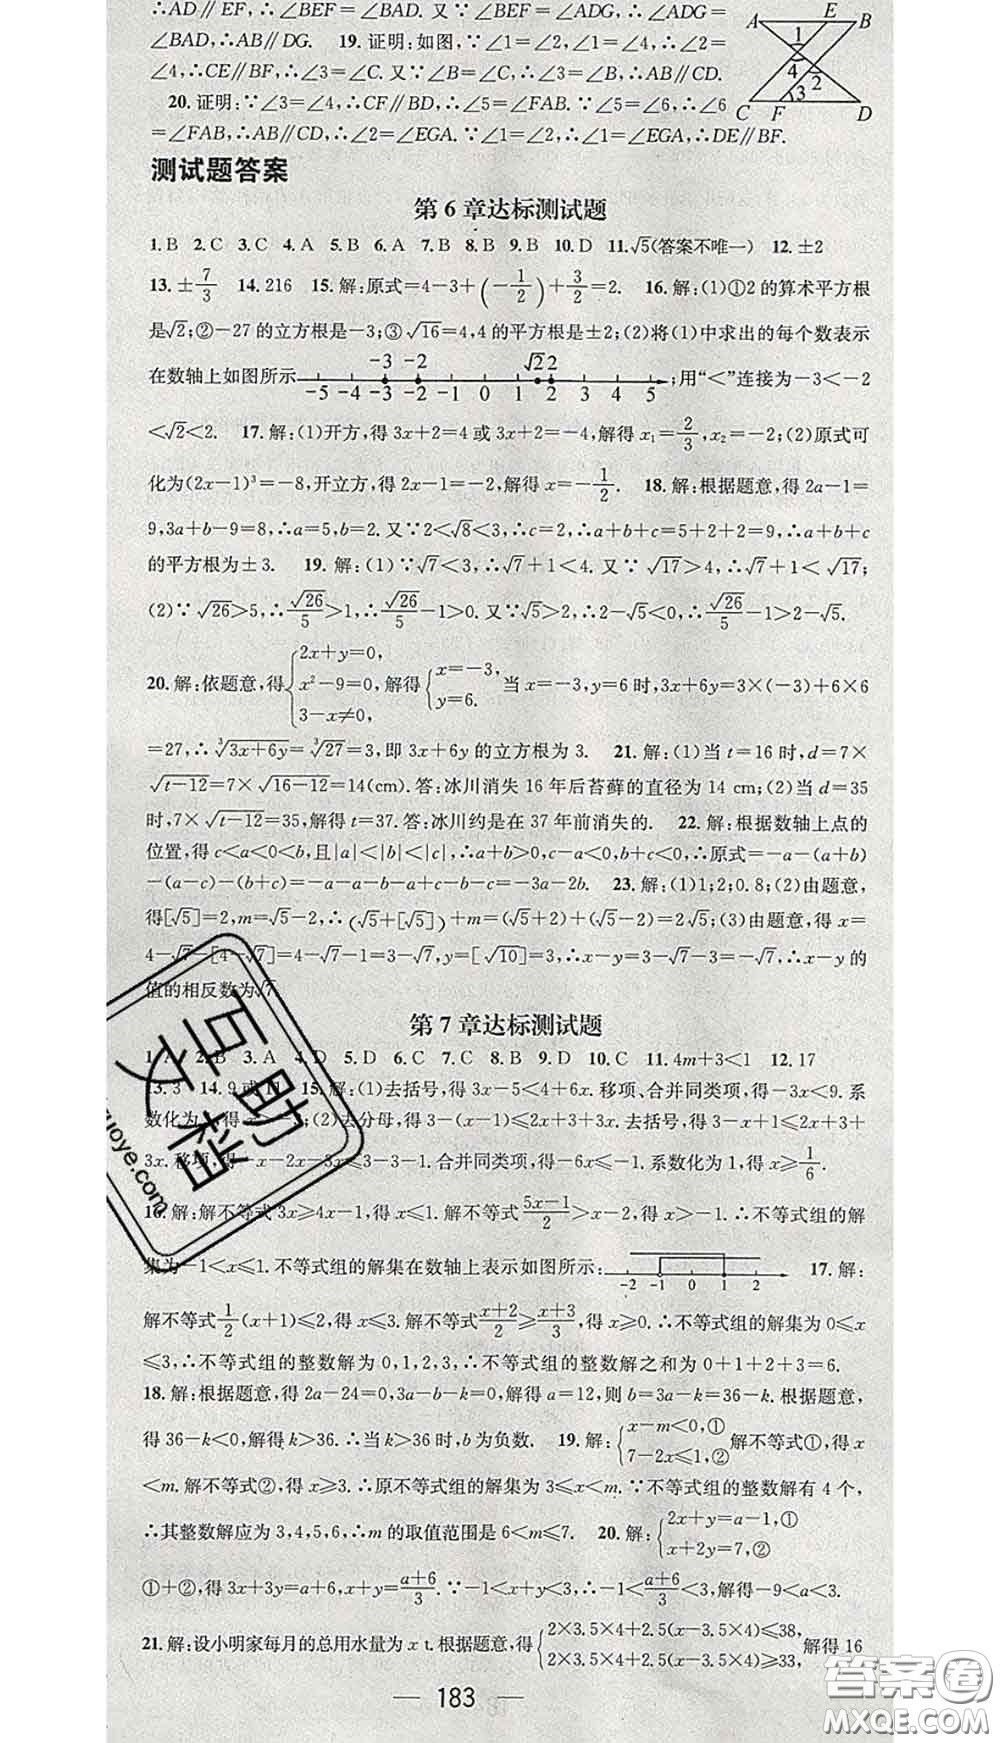 ∴AD∥EF,∴∠BEF=∠BAD.又∵∠BEF=∠ADG,∴∠ADG=
∠BAD,∴AB∥DG. 19.证明:如图,∵∠1=∠2,∠1=∠4,∴∠2=
∠4,∴CE∥BF,∴∠3=∠C.又∵∠B=∠C,∴∠3=∠B,∴AB∥CD.
20.证明:∵∠3=∠4,∴CF∥BD,∴∠5=∠FAB.∵∠5=∠6,∴∠6
=∠FAB,∴AB∥CD,∴∠2=∠EGA.∵∠1=∠2,∴∠1=∠EGA,∴DE∥BF.
A E B
1
4 2
3
C F D
测试题答案
第6章达标测试题
1.B 2.C 3.C 4.A 5.B 6.A 7.B 8.B 9.B 10.D 11.√5(答案不唯一) 12.±2
13.±7/3 14.216 15.解:原式=4-3+(-1/2)+3/2=2. 16.解:(1)①2的算术平方根
是√2;②-27的立方根是-3;③√16=4,4的平方根是±2;(2)将(1)中求出的每个数表示
在数轴上如图所示 -3 -2 √2 2 -5 -4 -3 -2 -1 0 1 2 3 4 5 ;用“<”连接为-3<-2
<√2<2. 17.解:(1)开方,得3x+2=4或3x+2=-4,解得x₁=2/3,x₂=-2;(2)原式可
化为(2x-1)³=-8,开立方,得2x-1=-2,解得x=-1/2. 18.解:根据题意,得2a-1=
9,3a+b-9=8,∴a=5,b=2.又∵2<√8<3,∴c=2,∴a+b+c=5+2+2=9,∴a+b+c
的平方根为±3. 19.解:(1)∵√7<3,∴√7+1<4.又∵√17>4,∴√7+1<√17;
(2)∵√26>5,∴√26/5>1,∴√26/5-1>0.又∵√5>2,∴2-√5<0,∴√26/5-1>2-√5.
20.解:依题意,得{2x+y=0, x²-9=0, 3-x≠0,解得{x=-3, y=6.当x=-3,y=6时,3x+6y=3×(-3)+6×6
=27,∴³√(3x+6y)=³√27=3,即3x+6y的立方根为3. 21.解:(1)当t=16时,d=7×
√(t-12)=7×√(16-12)=14(cm).答:冰川消失16年后苔藓的直径为14 cm;(2)当d=35
时,7×√(t-12)=35,解得t=37.答:冰川约是在37年前消失的. 22.解:根据数轴上点的
位置,得c<a<0<b,且|a|<|b|<|c|,∴a+b>0,c-a<0,b+c<0,∴原式=-a-(a+b)
-(a-c)-(b+c)=-a-a-b-a+c-b-c=-3a-2b. 23.解:(1)1;2;0.8;(2)由题意,
得[√5]=2,m=√5-2,∴(√5+[√5])+m=(√5+2)+(√5-2)=2√5;(3)由题意,得x=
4-√7-[4-√7]=4-√7-1=3-√7,y=[√10]=3,∴x-y=3-√7-3=-√7,∴x-y的
值的相反数为√7.
第7章达标测试题
1.A 2.B 3.A 4.D 5.D 6.C 7.C 8.B 9.D 10.C 11.4m+3<1 12.17
13.3 14.9或11 15.解:(1)去括号,得3x-5<4+6x.移项、合并同类项,得-3x<9.系
数化为1,得x>-3;(2)去分母,得3-(x-1)≤2x+3+3x.去括号,得3-x+1≤2x+3+
3x.移项,得-x-2x-3x≤3-3-1.合并同类项,得-6x≤-1.系数化为1,得x≥1/6.
16.解:解不等式3x≥4x-1,得x≤1.解不等式(5x-1)/2>x-2,得x>-1.∴不等式组的解
集为-1<x≤1.不等式组的解集在数轴上表示如图所示: -2 -1 0 1 2 17.解:
解不等式1/2(x+1)≤2,得x≤3.解不等式(x+2)/2≥(x+3)/3,得x≥0.∴不等式组的解集为0≤x
≤3,∴不等式组的整数解为0,1,2,3,∴不等式组的整数解之和为0+1+2+3=6.
18.解:根据题意,得2a-24=0,3a-b-k=0,解得a=12,则b=3a-k=36-k.根据题意,
得36-k<0,解得k>36.∴当k>36时,b为负数. 19.解:{x-m<0,① 7-2x≤1,②解不等式①,得x
<m.解不等式②,得x≥3.∴原不等式组的解集为3≤x<m.∵不等式组的整数解有4个,
∴其整数解应为3,4,5,6,∴m的取值范围是6<m≤7. 20.解:{2x+y=a-1,① x+2y=7,②
①+②,得3x+3y=a+6,x+y=(a+6)/3.∵-1<x+y<3,∴-1<(a+6)/3<3,解得-9<a<3.
21.解:设小明家每月的总用水量为x t.根据题意,得{2×3.5×4+2.5(x-3.5×4)≤38, 2×3.5×4+2.5(x-3.5×4)≥33,解得16
183
互助文档
zuoye.com
答案圈
MXQE.COM